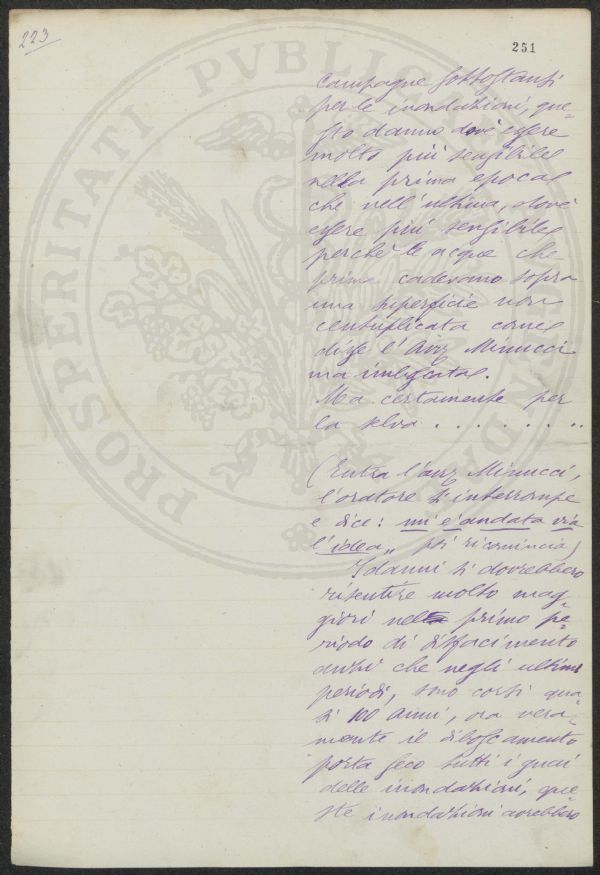 223
251
campagne sottostanti
per le inondazioni, que=
sto danno dové essere
molto più sensibile
nella prima epoca
che nell'ultima, dové
essere più sensibile
perchè le acque che
prima cadevano sopra
una superficie non
centuplicata come
disse l'Avv Minucci
ma
Ma certamente per
la selva . . . . . . . .
(Entra l'avv Minucci,
l'oratore s'interrompe
e dice: mi è andata via
l'idea„ poi ricomincia)
I danni si dovrebbero
risentire molto mag=
giori nel primo pe=
riodo di disfacimento
anzi che negli ultimi
periodi, sono corsi qua=
si 100 anni, ora vera=
mente il disboscamento
porta seco tutti i guai
delle inondazioni, que=
ste inondazioni avrebbero
PROSPERITATI PVBLICAE